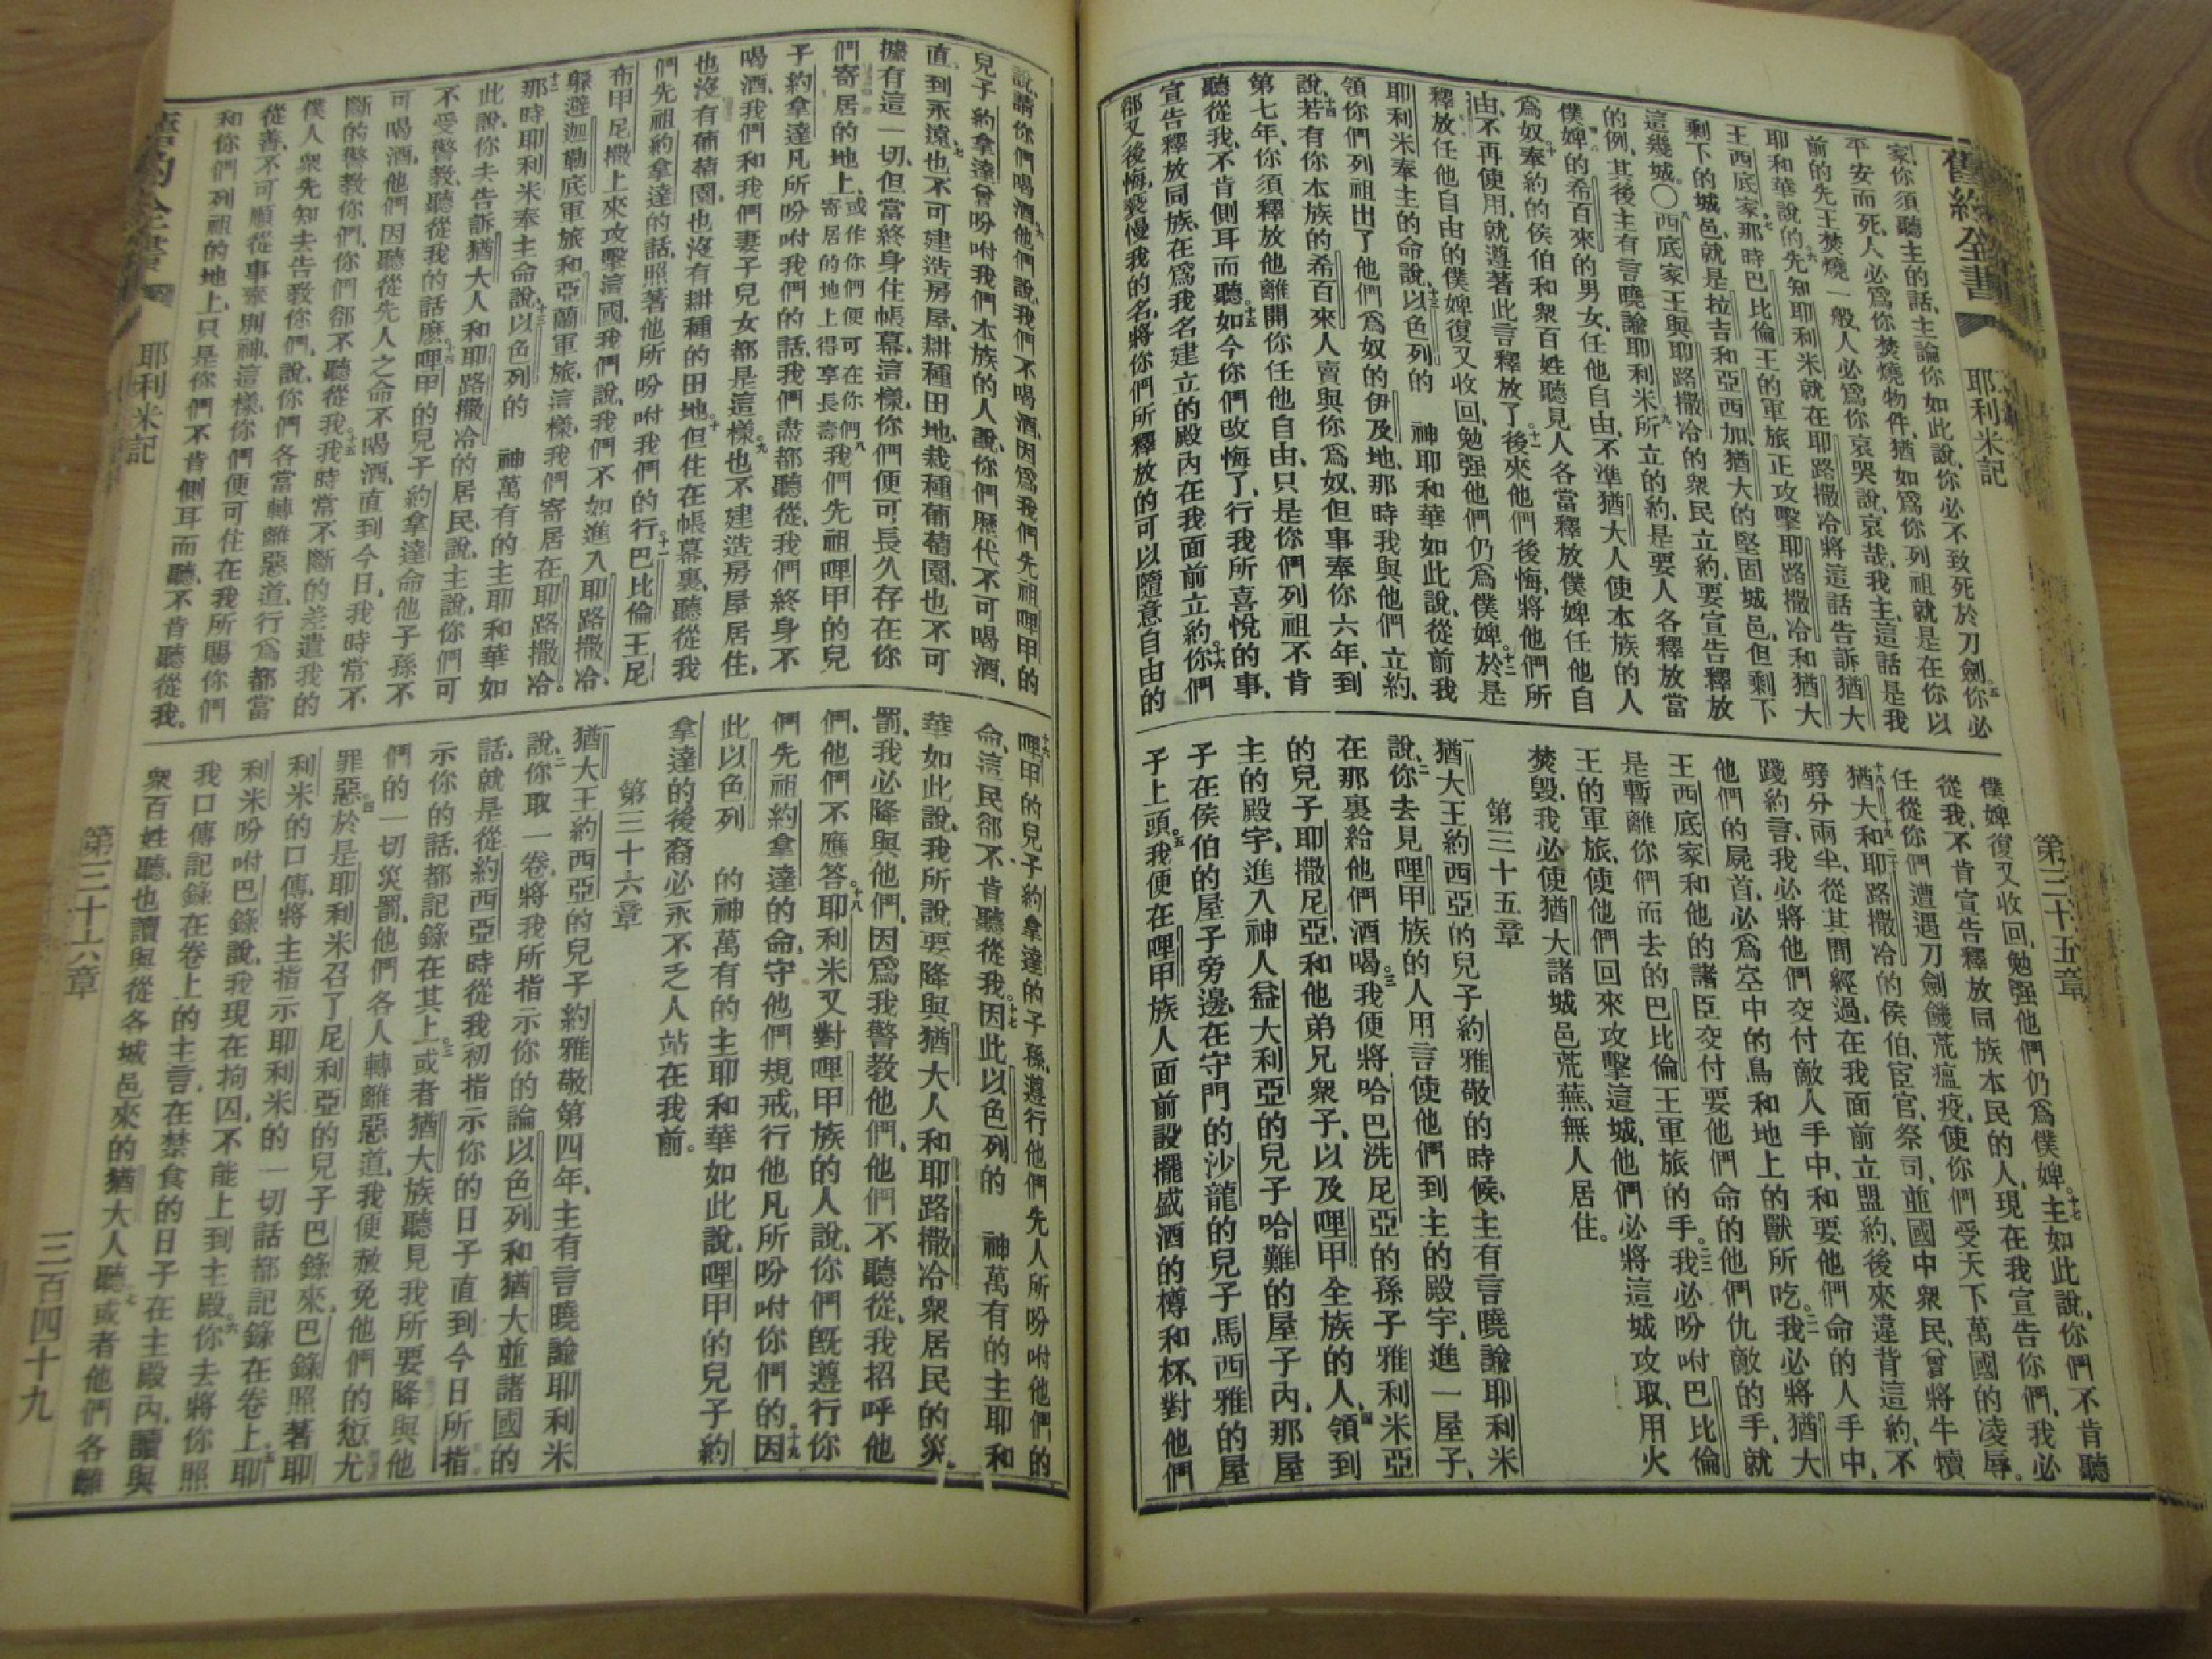 舊約全書
耶利米記
第三十五章
家、你須聽主的話、主論你如此說、你必不致死於刀劍、五你必
平安而死、人必爲你焚燒物件、猶如爲你列祖就是在你以
前的先王焚燒一般、人必爲你哀哭說、哀哉、我主、這話是我
耶和華說的、六先知耶利米就在耶路撒冷將這話告訴猶大
王西底家、七那時巴比倫王的軍旅正攻擊耶路撒冷和猶大
剩下的城邑、就是拉吉和亞西加、猶大的堅固城邑、但剩下
這幾城。〇八西底家王與耶路撒冷的衆民立約、要宣告釋放
的例、其後主有言曉諭耶利米、九所立的約、是要人各釋放當
僕婢的希百來的男女、任他自由、不準猶大人使本族的人
爲奴、十奉約的侯伯和衆百姓聽見人各當釋放僕婢任他自
由、不再使用、就遵著此言釋放了、十一後來他們後悔、將他們所
釋放任他自由的僕婢復又收回、勉强他們仍爲僕婢、十二於是
耶利米奉主的命說、十三以色列的 神耶和華如此說、從前我
領你們列祖出了他們爲奴的伊及地、那時我與他們立約、
說、十四若有你本族的希百來人賣與你爲奴、但事奉你六年、到
第七年、你須釋放他離開你任他自由、只是你們列祖不肯
聽從我、不肯側耳而聽。十五如今你們改悔了、行我所喜悅的事、
宣告釋放同族、在爲我名建立的殿內在我面前立約。十六你們
郤又後悔、褻慢我的名、將你們所釋放的可以隨意自由的
僕婢復又收回、勉强他們仍爲僕婢。十七主如此說、你們不肯聽
從我、不肯宣告釋放同族本民的人、現在我宣告你們、我必
任從你們遭遇刀劍饑荒瘟疫、使你們受天下萬國的凌辱。
十八十九猶大和耶路撒冷的侯伯、宦官、祭司、並國中衆民、曾將牛犢
劈分兩半、從其間經過、在我面前立盟約、後來違背這約、不
踐約言、我必將他們交付敵人手中、和要他們命的人手中、
他們的屍首、必爲空中的鳥和地上的獸所吃。二一我必將猶大
王西底家和他的諸臣交付要他們命的他們仇敵的手、就
是暫離你們而去的巴比倫王軍旅的手。二二我必吩咐巴比倫
王的軍旅、使他們回來攻擊這城、他們必將這城攻取、用火
焚毀、我必使猶大諸城邑荒蕪、無人居住。
第三十五章
一猶大王約西亞的兒子約雅敬的時候、主有言曉諭耶利米
說、二你去見哩甲族的人用言使他們到主的殿宇、進一屋子、
在那裏給他們酒喝。三我便將哈巴洗尼亞的孫子雅利米亞
的兒子耶撒尼亞、和他弟兄衆子、以及哩甲全族的人、四領到
主的殿宇、進入神人益大利亞的兒子哈難的屋子內、那屋
子在侯伯的屋子旁邊、在守門的沙龍的兒子馬西雅的屋
子上頭。五我便在哩甲族人面前設擺盛酒的樽和杯、對他們
說、請你們喝酒、六他們說、我們不喝酒、因爲我們先祖哩甲的
兒子約拿達曾吩咐我們本族的人說、你們歷代不可喝酒、
直到永遠、七也不可建造房屋、耕種田地、栽種葡萄園、也不可
據有這一切、但當終身住帳幕、這樣、你們便可長久存在你
們寄居的地上、或作你們便可在你們寄居的地上得享長壽八我們先祖哩甲的兒
子約拿達凡所吩咐我們的話、我們盡都聽從、我們終身不
喝酒、我們和我們妻子兒女都是這樣、九也不建造房屋居住、
也沒有葡萄園、也沒有耕種的田地、十但住在帳幕裏、聽從我
們先祖約拿達的話、照著他所吩咐我們的行、十一巴比倫王尼
布甲尼撒上來攻擊這國、我們說、我們不如進入耶路撒冷、
躲避迦勒底軍旅和亞蘭軍旅、這樣、我們寄居在耶路撒冷。
十二那時耶利米奉主命說、十三以色列的 神萬有的主耶和華如
此說、你去告訴猶大人和耶路撒冷的居民說、主說、你們可
不受警教、聽從我的話麽、十四哩甲的兒子約拿達命他子孫不
可喝酒、他們因聽從先人之命不喝酒、直到今日、我時常不
斷的警教你們、你們郤不聽從我、十五我時常不斷的差遣我的
僕人衆先知去告敎你們、說、你們各當轉離惡道、行爲都當
從善、不可順從事奉別神、這樣、你們便可住在我所賜你們
和你們列祖的地上、只是你們不肯側耳而聽、不肯聽從我。
十六哩甲的兒子約拿達的子孫、遵行他們先人所吩咐他們的
命、這民郤不肯聽從我。十七因此以色列的 神萬有的主耶和
華如此說、我所說要降與猶大人和耶路撒冷衆居民的災
罰、我必降與他們、因爲我警教他們、他們不聽從、我招呼他
們、他們不應答。十八耶利米又對哩甲族的人說、你們旣遵行你
們先祖約拿達的命、守他們規戒、行他凡所吩咐你們的、十九因
此以色列 的神萬有的主耶和華如此說、哩甲的兒子約
拿達的後裔必永不乏人站在我前。
第三十六章
猶大王約西亞的兒子約雅敬第四年、主有言曉諭耶利米
說、二你取一卷、將我所指示你的論以色列和猶大並諸國的
話、就是從約西亞時從我初指示你的日子直到今日所指
示你的話、都記錄在其上。三或者猶大族聽見我所要降與他
們的一切災罰、他們各人轉離惡道、我便赦免他們的愆尤
罪惡。四於是耶利米召了尼利亞的兒子巴錄來、巴錄照著耶
利米的口傳、將主指示耶利米的一切話都記錄在卷上。五耶
利米吩咐巴錄說、我現在拘囚、不能上到主殿。六你去將你照
我口傳記錄在卷上的主言、在禁食的日子在主殿內、讀與
衆百姓聽、也讀與從各城邑來的猶大人聽、七或者他們各離
耶利米記
第三十六章
三百四十九